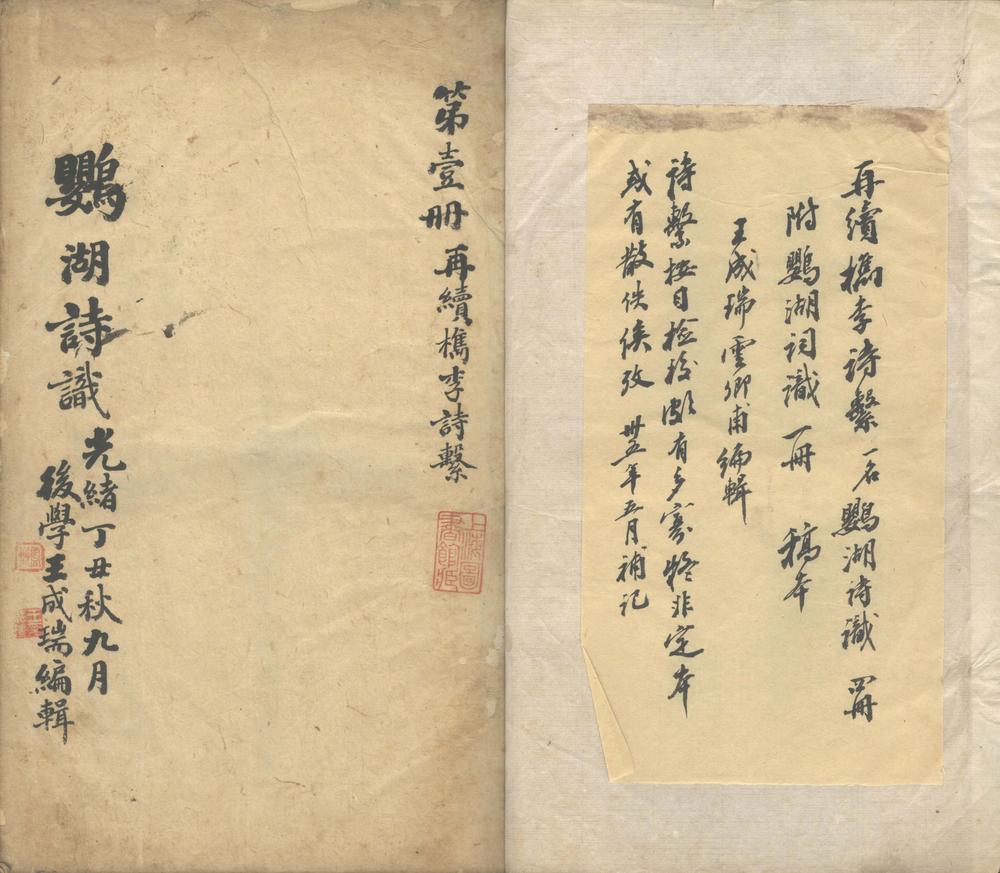 再續檇李詩繫 一名鸚湖詩識 四冊
附鸚湖词識一冊 稿本
王成瑞雲卿甫編輯
詩繫按目检校頗有多寡殆非定本
或有散佚俟攷 卅五年五月補記
第壹冊 再續檇李詩繫
上海圖書館藏
鸚湖詩識
光緒丁丑秋九月
後學王成瑞編輯